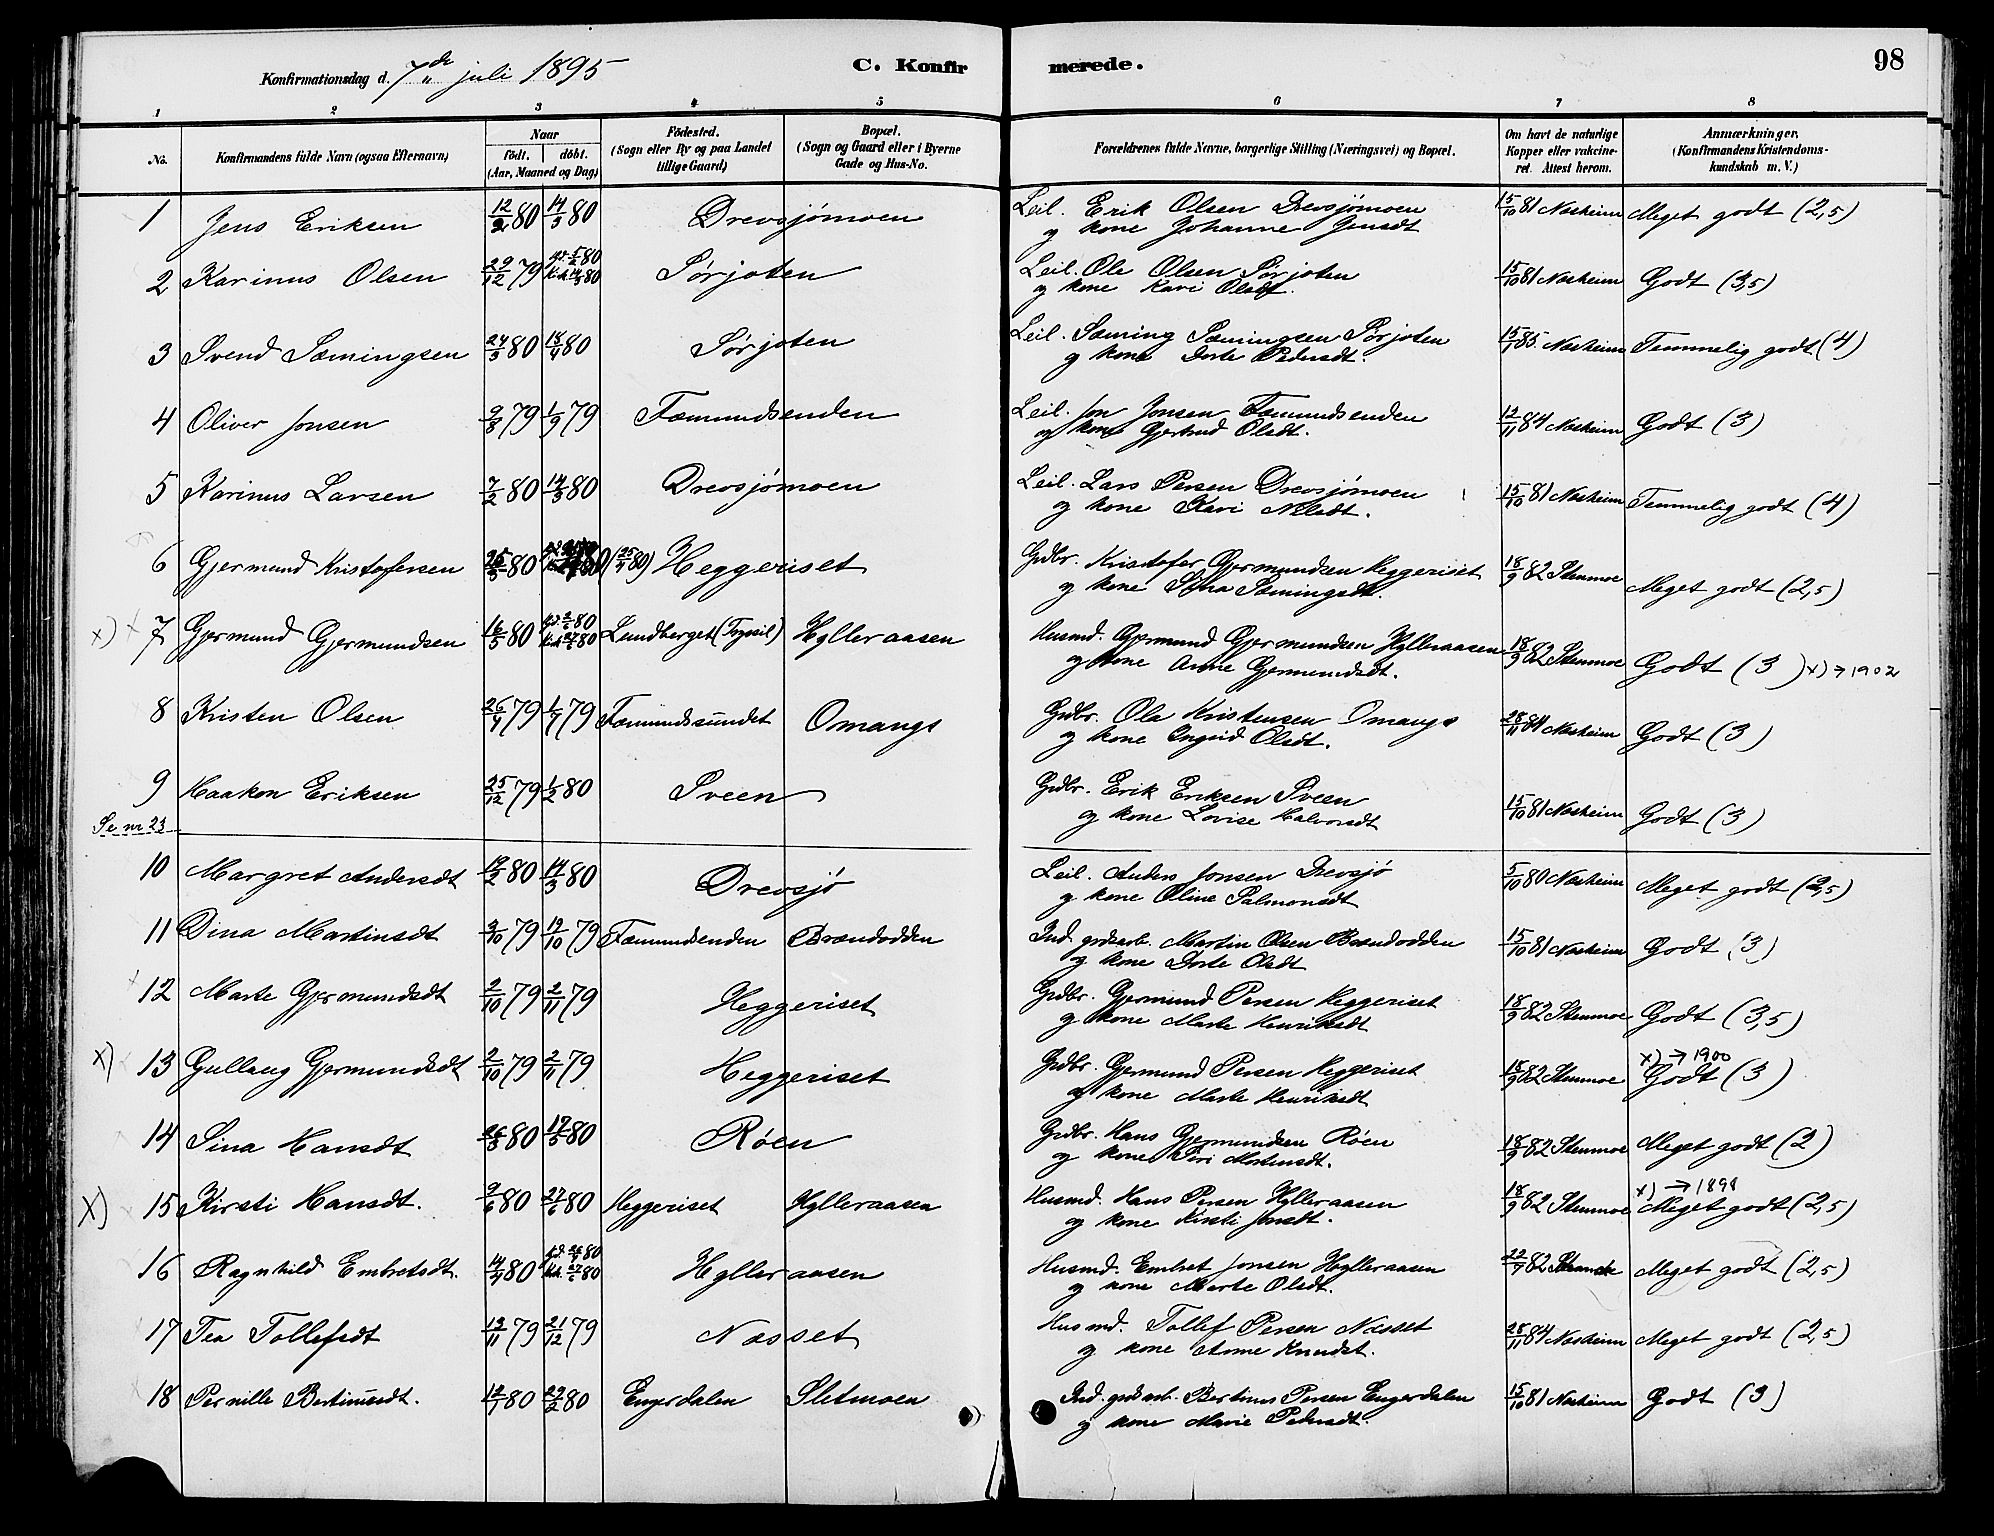 Konfirmationsdag d. 7de juli 1895
C. Konfirmerede.
98
1 2 3 4 5 6 7 8
No.
Konfirmandens fulde Navn (ogsaa Efternavn)
Naar
født. døbt.
(Aar, Maaned og Dag)
Fødested.
(Sogn eller By og paa Landet
tillige Gaard)
Bopæl.
(Sogn og Gaard eller i Byerne
Gade og Hus-No.
Forældrenes fulde Navne, borgerlige Stilling (Næringsvei) og Bopæl.
Om havt de naturlige
Kopper eller vakcine-
ret. Attest herom.
Anmærkninger.
(Konfirmandens Kristendoms-
kundskab m. V.)
1 Jens Eriksen 80 14/3 80 Drevsjømoen Leil. Erik Olsen Drevsjømoen 15/10 81 Næsheim Meget godt (2,5)
og kone Johanne Jensdt
2 Karinus Olsen 29/12 79 Kirk 14/3 80 Sørjoten Leil. Ole Olsen Sørjoten 15/10 81 Næsheim Godt (3,5)
og kone Kari Olsdt.
3 Svend Sæmingsen 24/3 80 18/4 80 Sørjoten Leil. Sæming Sæmingsen Sørjoten 85 Næsheim Temmelig godt (4)
og kone Dorte Pedersdt.
4 Oliver Jonsen 79 1/9 79 Fæmundsenden Leil. Jon Jonsen Fæmundsenden 12/11 84 Næsheim Godt (3)
og kone Gjertrud Olsdt.
5 Karinus Larsen 7/2 80 14/3 80 Drevsjømoen Leil. Lars Persen Drevsjømoen 15/10 81 Næsheim Temmelig godt (4)
og kone Kari Nilsdt.
6 Gjermund Kristofersen 80 Heggeriset Grdbr. Kristofer Gjermundsen Heggeriset 18/9 82 Stenmoe Meget godt (2,5)
og kone Sæmingsdt.
x) 7 Gjermund Gjermundsen 16/5 80 Lundberget (Trysil) Hylleraasen Husmd. Gjermund Gjermundsen Hylleraasen 18/9 82 Stenmoe Godt (3) x) → 1902
og kone Anne Gjermundsdt.
8 Kristen Olsen 26/4 79 1/7 79 Fæmundssundet Omangs Grdbr. Ola Kristensen Omangs 28/11 84 Næsheim Godt (3)
og kone Ingrid Olsdt.
9 Haakon Eriksen 25/12 79 1/2 80 Sveen Grdbr. Erik Eriksen Sveen 15/10 81 Næsheim Godt (3)
og kone Lovise Halvorsdt
Se nr 23
10 Margret Andersdt 80 14/3 80 Drevsjø Leil. Anders Jonsen Drevsjø 5/10 80 Næsheim Meget godt (2,5)
og kone Oline Salmonsdt
11 Dina Martinsdt 79 79 Fæmundsenden Brændodden Ind. grdsarb. Martin Olsen Brændodden 15/10 81 Næsheim Godt (3)
og kone Dorte Olsdt
12 Marte Gjermundsdt 2/10 79 2/11 79 Heggeriset Grdbr. Gjermund Persen Heggeriset 18/9 82 Stenmoe Godt (3,5)
og kone Marte Henriksdt
x) 13 Gullaug Gjermundsdt 2/10 79 2/11 79 Heggeriset Grdbr. Gjermund Persen Heggeriset 18/9 82 Stenmoe x) → 1900 Godt (3)
og kone Marte Henriksdt
14 Sina Hansdt 80 80 Røen Grdbr. Hans Gjermundsen Røen 18/9 82 Stenmoe Meget godt (2)
og kone Siri Mortensdt.
x) 15 Kirsti Hansdt. 80 27/6 80 Heggeriset Hylleraasen Husmd. Hans Persen Hylleraasen 18/9 82 Stenmoe x) → 1898 Meget godt (2,5)
og kone Kirsti Jonsdt.
16 Ragnhild Embretsdt. 14/4 80 Hylleraasen Husmd. Embret Jonsen Hylleraasen 82 Meget godt (2,5)
og kone Marte Olsdt.
17 Tea Tollefsdt 13/11 79 21/12 79 Næsset Husmd. Tollef Persen Næsset 28/11 84 Næsheim Meget godt (2,5)
og kone Anne Knudsdt.
18 Pernille Bertinusdt. 80 29/2 80 Engerdalen Sletmoen Ind. grdsarb. Bertinus Persen Engerdalen 15/10 81 Næsheim Godt (3)
og kone Marie Pedersdt.